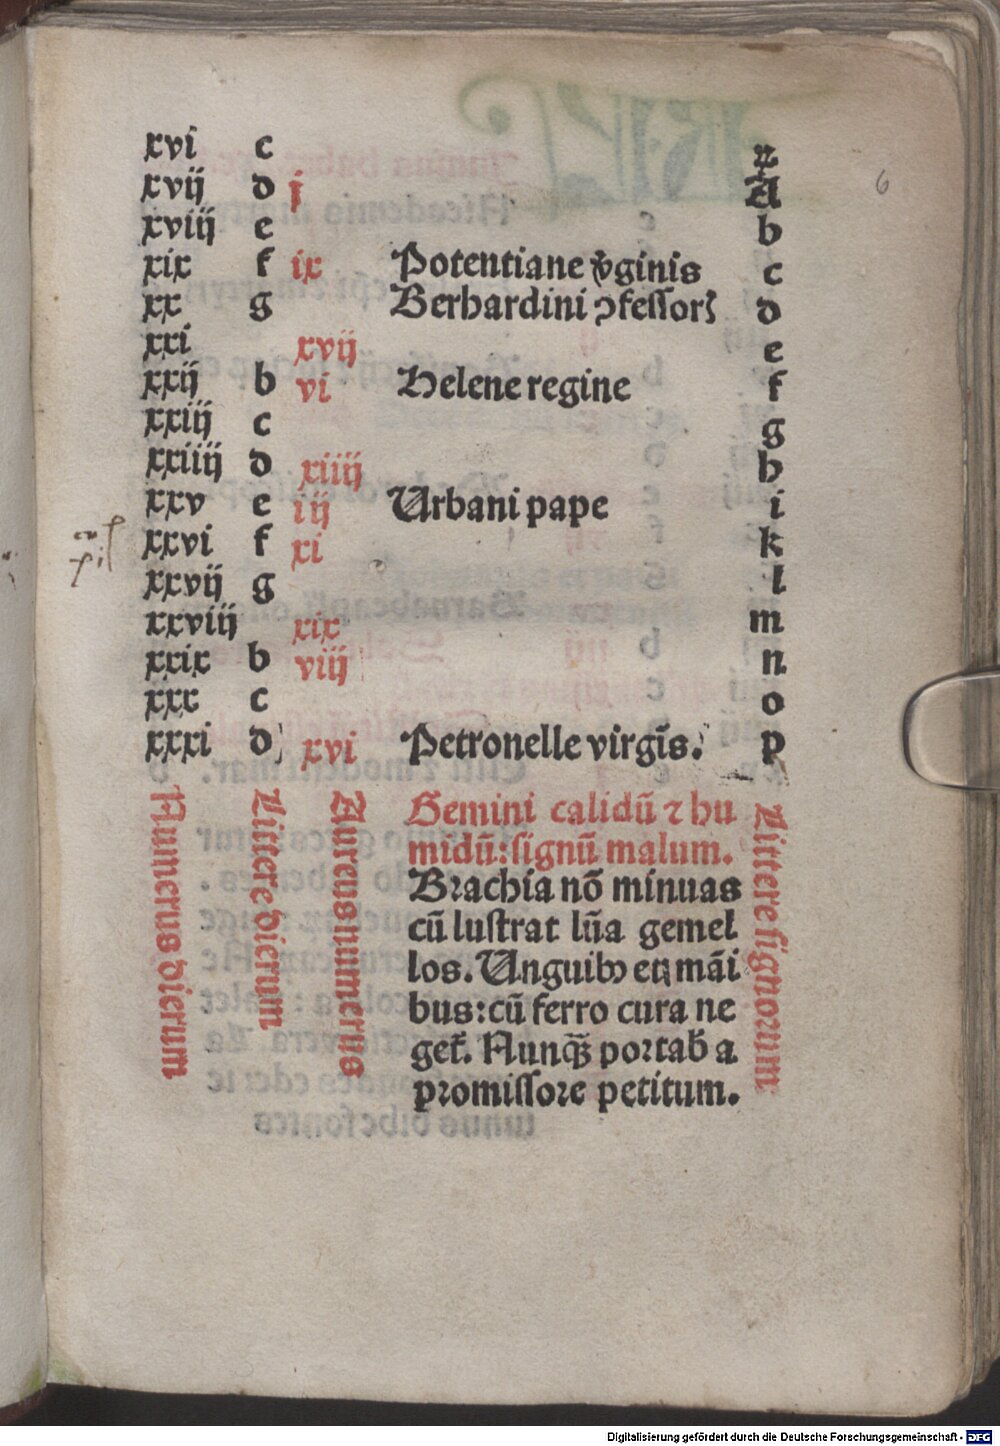 6
xvi c z
xvij d j A
xviij e b
xix f ix Potentiane v̄ginis c
xx g Berhardini ꝯfessorꝭ d
xxi xvij e
xxij b vi Helene regine f
xxiij c g
xxiiij d xiiij h
xxv e iij Urbani pape i
xxvi f xi k
xxvij g l
xxviij xix m
xxix b viij n
xxx c o
xxxi d xvi Petronelle virgīs. p
Numerus dierum
Littere dierum
Aureus numerus
Gemini calidū ⁊ hu
midū: signū malum.
Brachia nō minuas
cū lustrat lūa gemel
los. Unguibꝰ etꝫ māi
bus: cū ferro cura ne
get᷒. Nunqꝫ portab̄ a
promissore petitum.
Littere signorum
Digitalisierung gefördert durch die Deutsche Forschungsgemeinschaft - DFG